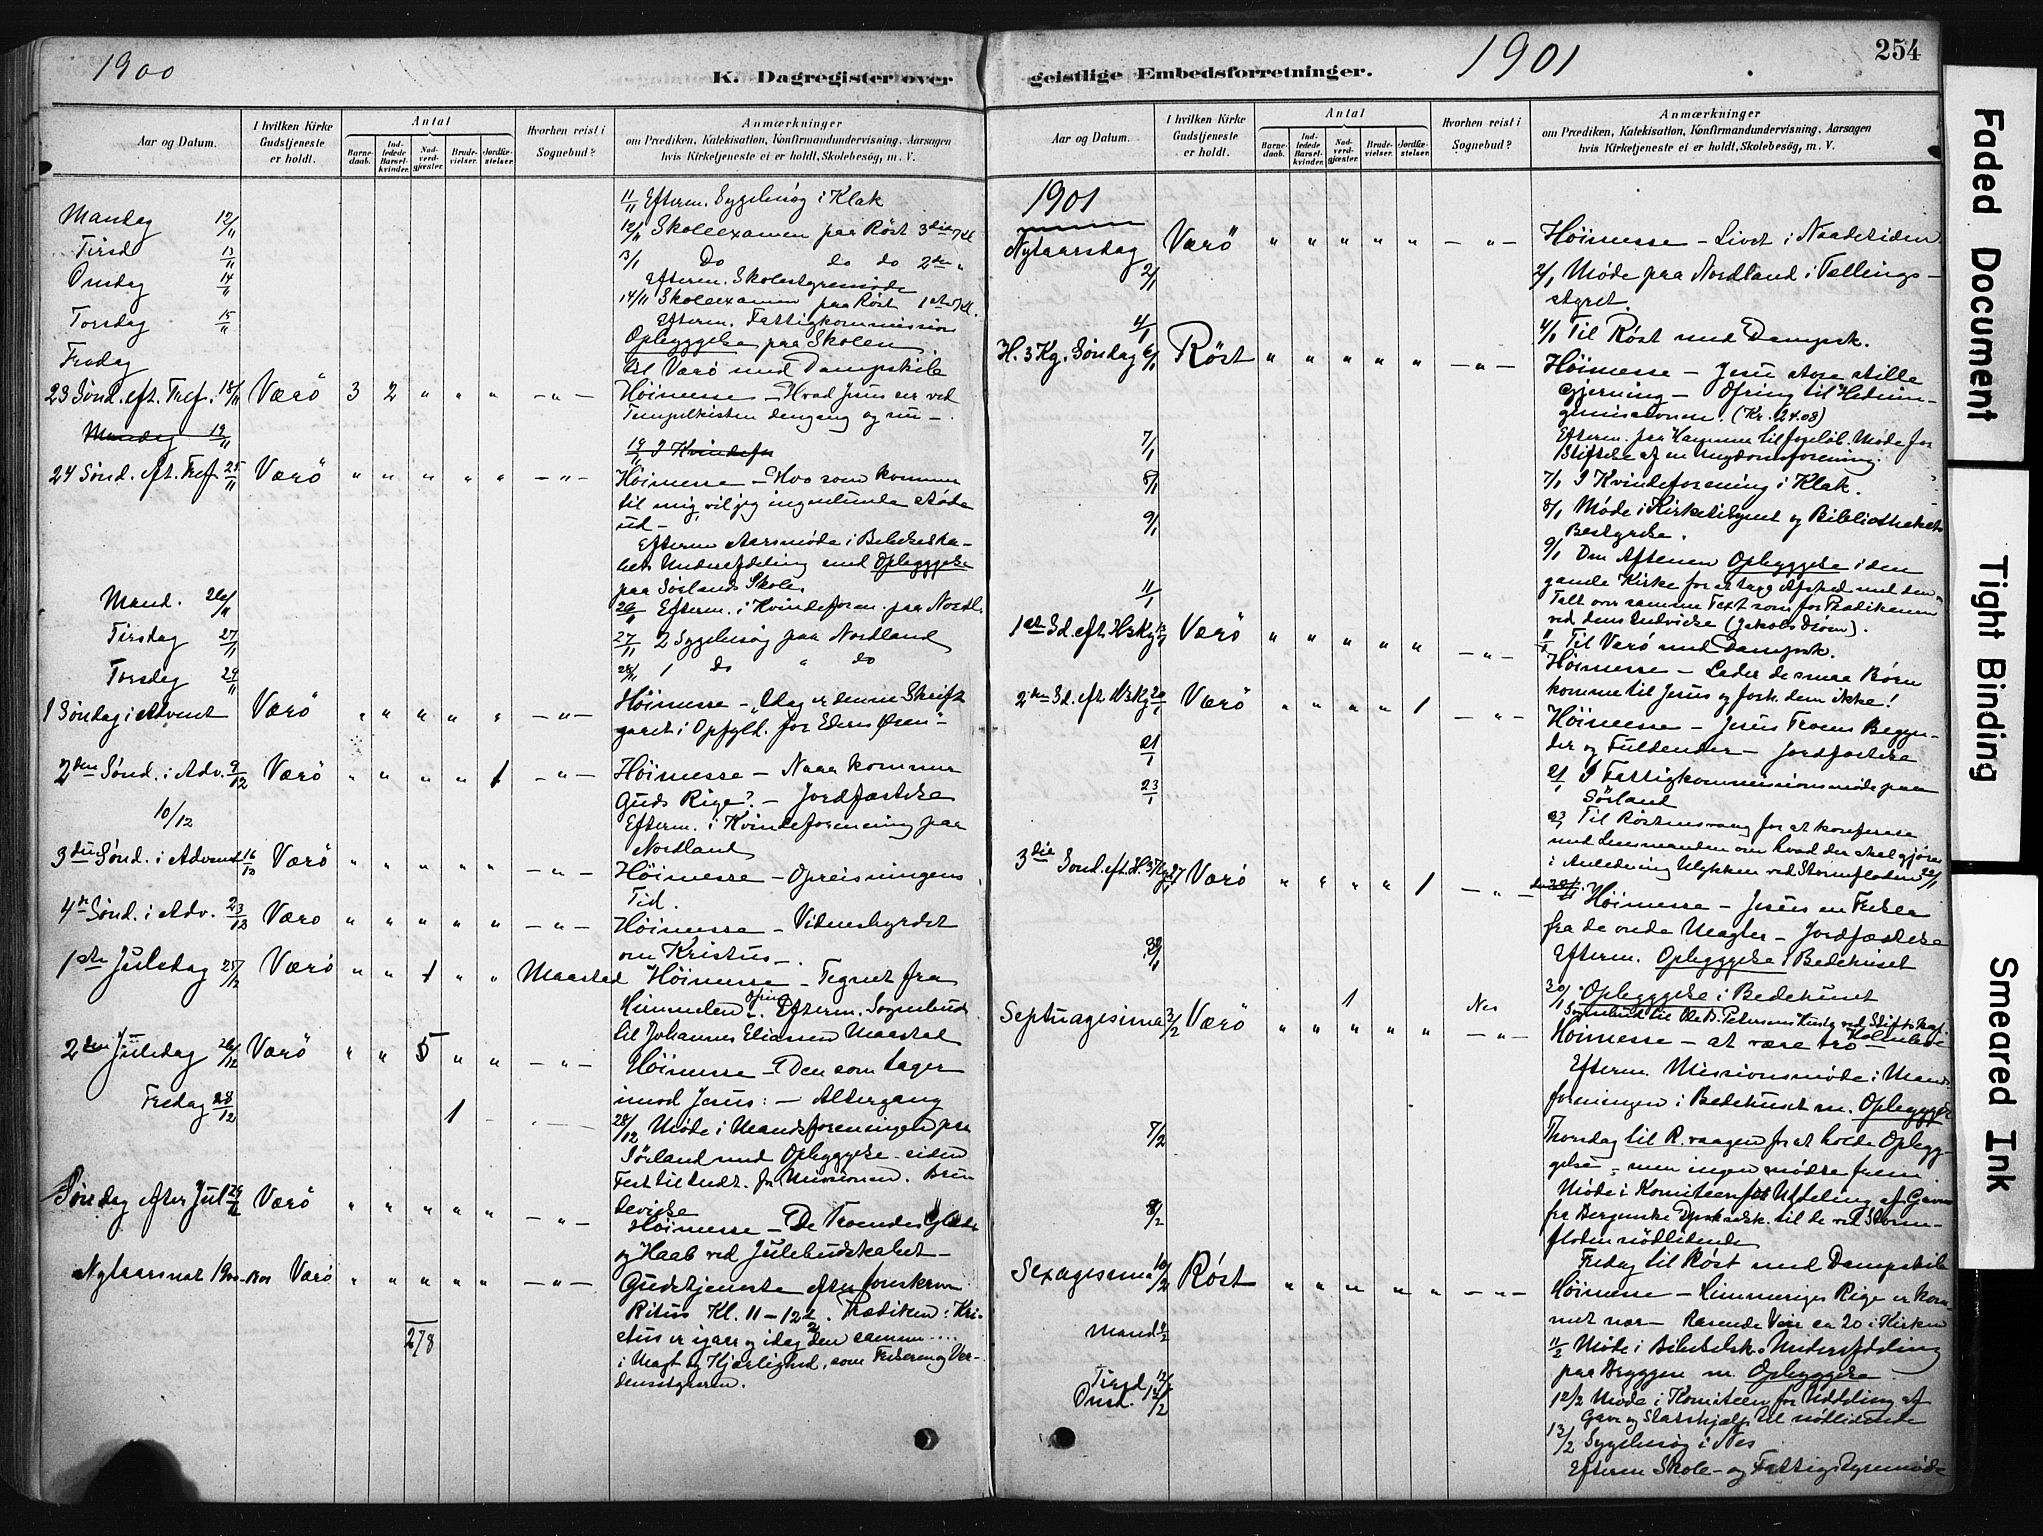 1900
K. Dagregister over
Aar og Datum.
I hvilken Kirke Gudstjeneste er holdt.
Antal
Barne-daab.
Ind-ledede Barsel-kvinder.
Nad-verd-gjester.
Brude-vielser.
Jordfæ-stelser.
Hvorhen reist i Sognebud?
Anmærkninger
om Prædiken, Katekisation, Konfirmandundervisning, Aarsagen
hvis Kirketjeneste ei er holdt, Skolebesøg, m. V.
11/11 Efterm. Sygebesøg i Klak
Mandag 12/11
12/11 Skoleexamen paa Røst 3die Kl
Tirsd 13/11
13/1 Do do do 2den "
Efterm. Skolestyremøde
Onsdag 14/11
14/11 Skoleexamen paa Røst 1ste Kl.
Torsdag 15/11
Efterm. Fattigkommission
Opbyggelse paa Skolen
Fredag
til Værø med Dampskib
23 Sønd. eft. Tref. 18/11 Værø 3 2 " " " - " - Høimesse - Hvad Jesus ser ved
Tempelkisten dengang og nu -.
Mandag 19/11
19/11 I Kvindefor
24 Sønd. eft. Tref. 25/11 Værø " " " " " - " - Høimesse - Hvo som kommer
til mig, vil jeg ingenlunde støde
ud -
Efterm Aarsmøde i Bibelselska-
bets Underafdeling med Opbyggelse
paa Sørlands Skole.
Mand. 26/11
26/11 Efterm. i Kvindeforen. paa Nordl.
Tirsdag 27/11
27/11 2 Sygebesøg paa Nordland
Torsdag 29/11
28/11 1 do " do
1 Søndag i Advent Værø " " " " " - " - Høimesse - "Idag er denne Skrift
gaaet i Opfyld. for Eders Øren" -
2den Sønd. i Adv. 9/12 Værø " " " " 1 - " - Høimesse - Naar kommer
Guds Rige? - Jordfæstelse
10/12
Efterm. i Kvindeforening paa
Nordland
3die Sønd. i Advent 16/12 Værø " " " " " - " - Høimesse - Opreisningens
Tid.
4de Sønd. i Adv. 23/12 Værø " " " " " - " - Høimesse - Vidnesbyrdet
om Kristus -.
1ste Juledag 25/12 Værø " " 1 " " Maastad Høimesse - Tegnet fra
Himmelen - Ofring Efterm. Sognebud
til Johannes Eliassen Maastad
2den Juledag 26/12 Værø " " 5 " " - " - Høimesse - Den som tager
imod Jesus: - Altergang
Fredag 28/12 1
28/12 Møde i Mandsforeningen paa
Sørland med Opbyggelse - siden
Fest til Indt. for Missionen. Bru-
devielse
Søndag efter Jul 29/12 Værø " " " " " - " - Høimesse - De Troendes Glæde
og Haab ved Julebudskabet -
Nytaarsnat 1900-1901 Værø " " " " " - " - Gudstjeneste efter foreskrevn
Ritus Kl. 11 - 12 1/2. Prædiken: Kri-
278
stus er igaar og idag den samme ....
i Magt og Kjærlighed, som Frelser og Ver-
densstyrer.
geistlige Embedsforretninger.
1901
254
Aar og Datum.
I hvilken Kirke Gudstjeneste er holdt.
Antal
Barne-daab.
Ind-ledede Barsel-kvinder.
Nad-verd-gjester.
Brude-vielser.
Jordfæ-stelser.
Hvorhen reist i Sognebud?
Anmærkninger
om Prædiken, Katekisation, Konfirmandundervisning, Aarsagen
hvis Kirketjeneste ei er holdt, Skolebesøg, m. V.
1901
Nytaarsdag Værö " " " " " - " - Høimesse - Livet i Naadetiden
2/1
2/1 Møde paa Nordland i Tællings-
styret.
4/1
4/1 Til Røst med Dampsk.
H. 3 Kg. Søndag 6/1 Røst " " " " " - " - Høimesse - Jesu store stille
Gjerning - Ofring til Hednin-
gemissionen. (Kr. 24.08)
Efterm. paa Hammer til foreløb. Møde for
Stiftelse af en Ungdomsforening.
7/1
7/1 I Kvindeforening i Klak.
8/1
8/1 Møde i Kirketilsynet og Bibliothekets
Bestyrelse.
9/1
9/1 Om Aftenen Opbyggelse i den
gamle Kirke for at tage Afsked med den -
Talt over samme Text som for Prædikenen
ved dens Indvielse (Jakobs Drøm).
11/1
11/1 Til Værø med Dampsk.
1ste Sd. eft. H3Kg 13/1 Værø " " " " " - " - Høimesse - Lader de smaa Børn
komme til Jesus og forh. dem ikke!
2den Sd. eft. H3Kg 20/1 Værø " " " " 1 - " - Høimesse - Jesus Troens Begyn-
der og Fuldender - Jordfæstelse
21/1
21/1 I Fattigkommissionsmøde paa
Sørland
23/1
23 Til Røstnesvaag for at konferere
med Lensmanden om hvad der skal gjøres
i Anledning Ulykken ved Stormfloden 22/1
3die Sønd. eft. H.3Kg 27 Værø " " " " 1 - " - Høimesse - Jesus en Frelser
fra de onde Magter - Jordfæstelse
Efterm. Opbyggelse i Bedehuset
30/1
30/1 Opbyggelse i Bedehuset
1 Nes Sognebud til Ole B. Petersens Hustru
Septuagesima 3/2 Værø " " " " " - " - Høimesse - at være tro
Efterm. Missionsmøde i Mands-
foreningen i Bedehuset m. Opbyggelse
7/2
Thorsdag til R.vaagen for at holde Opbyg-
gelse - men ingen mødte frem.
8/2
Møde i Komiteen for Uddeling af Gaver
fra Bergenske Dpskselsk. til de ved Storm-
floden nødlidende
Fredag til Røst med Dampskib
Sexagesima 10/2 Røst " " " " " - " - Høimesse - Himmeriges Rige er kom-
met nær - Rasende Veir ca 20 i Kirken
Mand 11/2
11/2 Møde i Bibelselsk. Underafdeling
paa Bryggen m. Opbyggelse.
Tirsd. 12/2
12/2 Møde i Komiteen for Uddeling af
Gave og Statshjælp til nødlidende
Onsd. 13/2
13/2 Sygebesøg i Nes
Efterm Skole- og Fattigstyremøde
Faded Document
Tight Binding
Smeared Ink